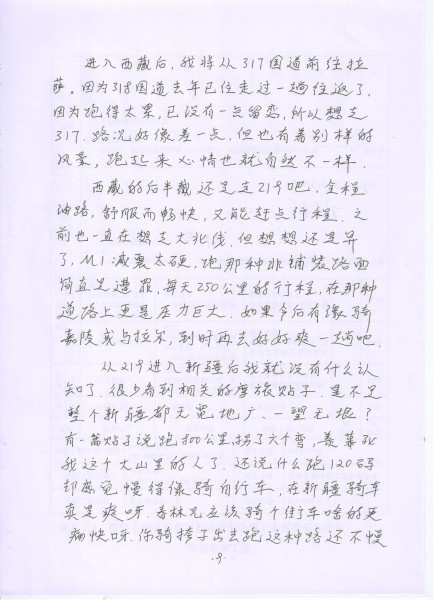 进入西藏后,我将从317国道前往拉
萨。因为318国道去年已经走过一趟往返了,
因为跑得太累,已没有一点留恋,所以想走
317.路况好像差一点,但也有着别样的
风景,跑起来心情也就自然不一样.
西藏的后半截还是走219吧,全程
油路,舒服而畅快,又能赶点行程.之
前也一直在想走大北线.但想想还是算
了,M1减震太硬,跑那种非铺装路面
简直是遭罪,每天250公里的行程,在那种
道路上更是压力巨大.如果今后有缘骑
嘉陵或与拉尔,到时再去好好爽一趟吧.
从219进入新疆后我就没有什么认
知了.很少看到相关的摩旅贴子.是不是
整个新疆都天宽地广.一望无垠?
有一篇贴子说跑300公里,拐了六个弯,羡慕死
我这个大山里的人了.还说什么跑120码
却感觉慢得像骑自行车,在新疆骑车
真是爽呀.春林兄应该骑个街车啥的更
痛快呀.你骑挎子出去跑这种路还不慢
.9.